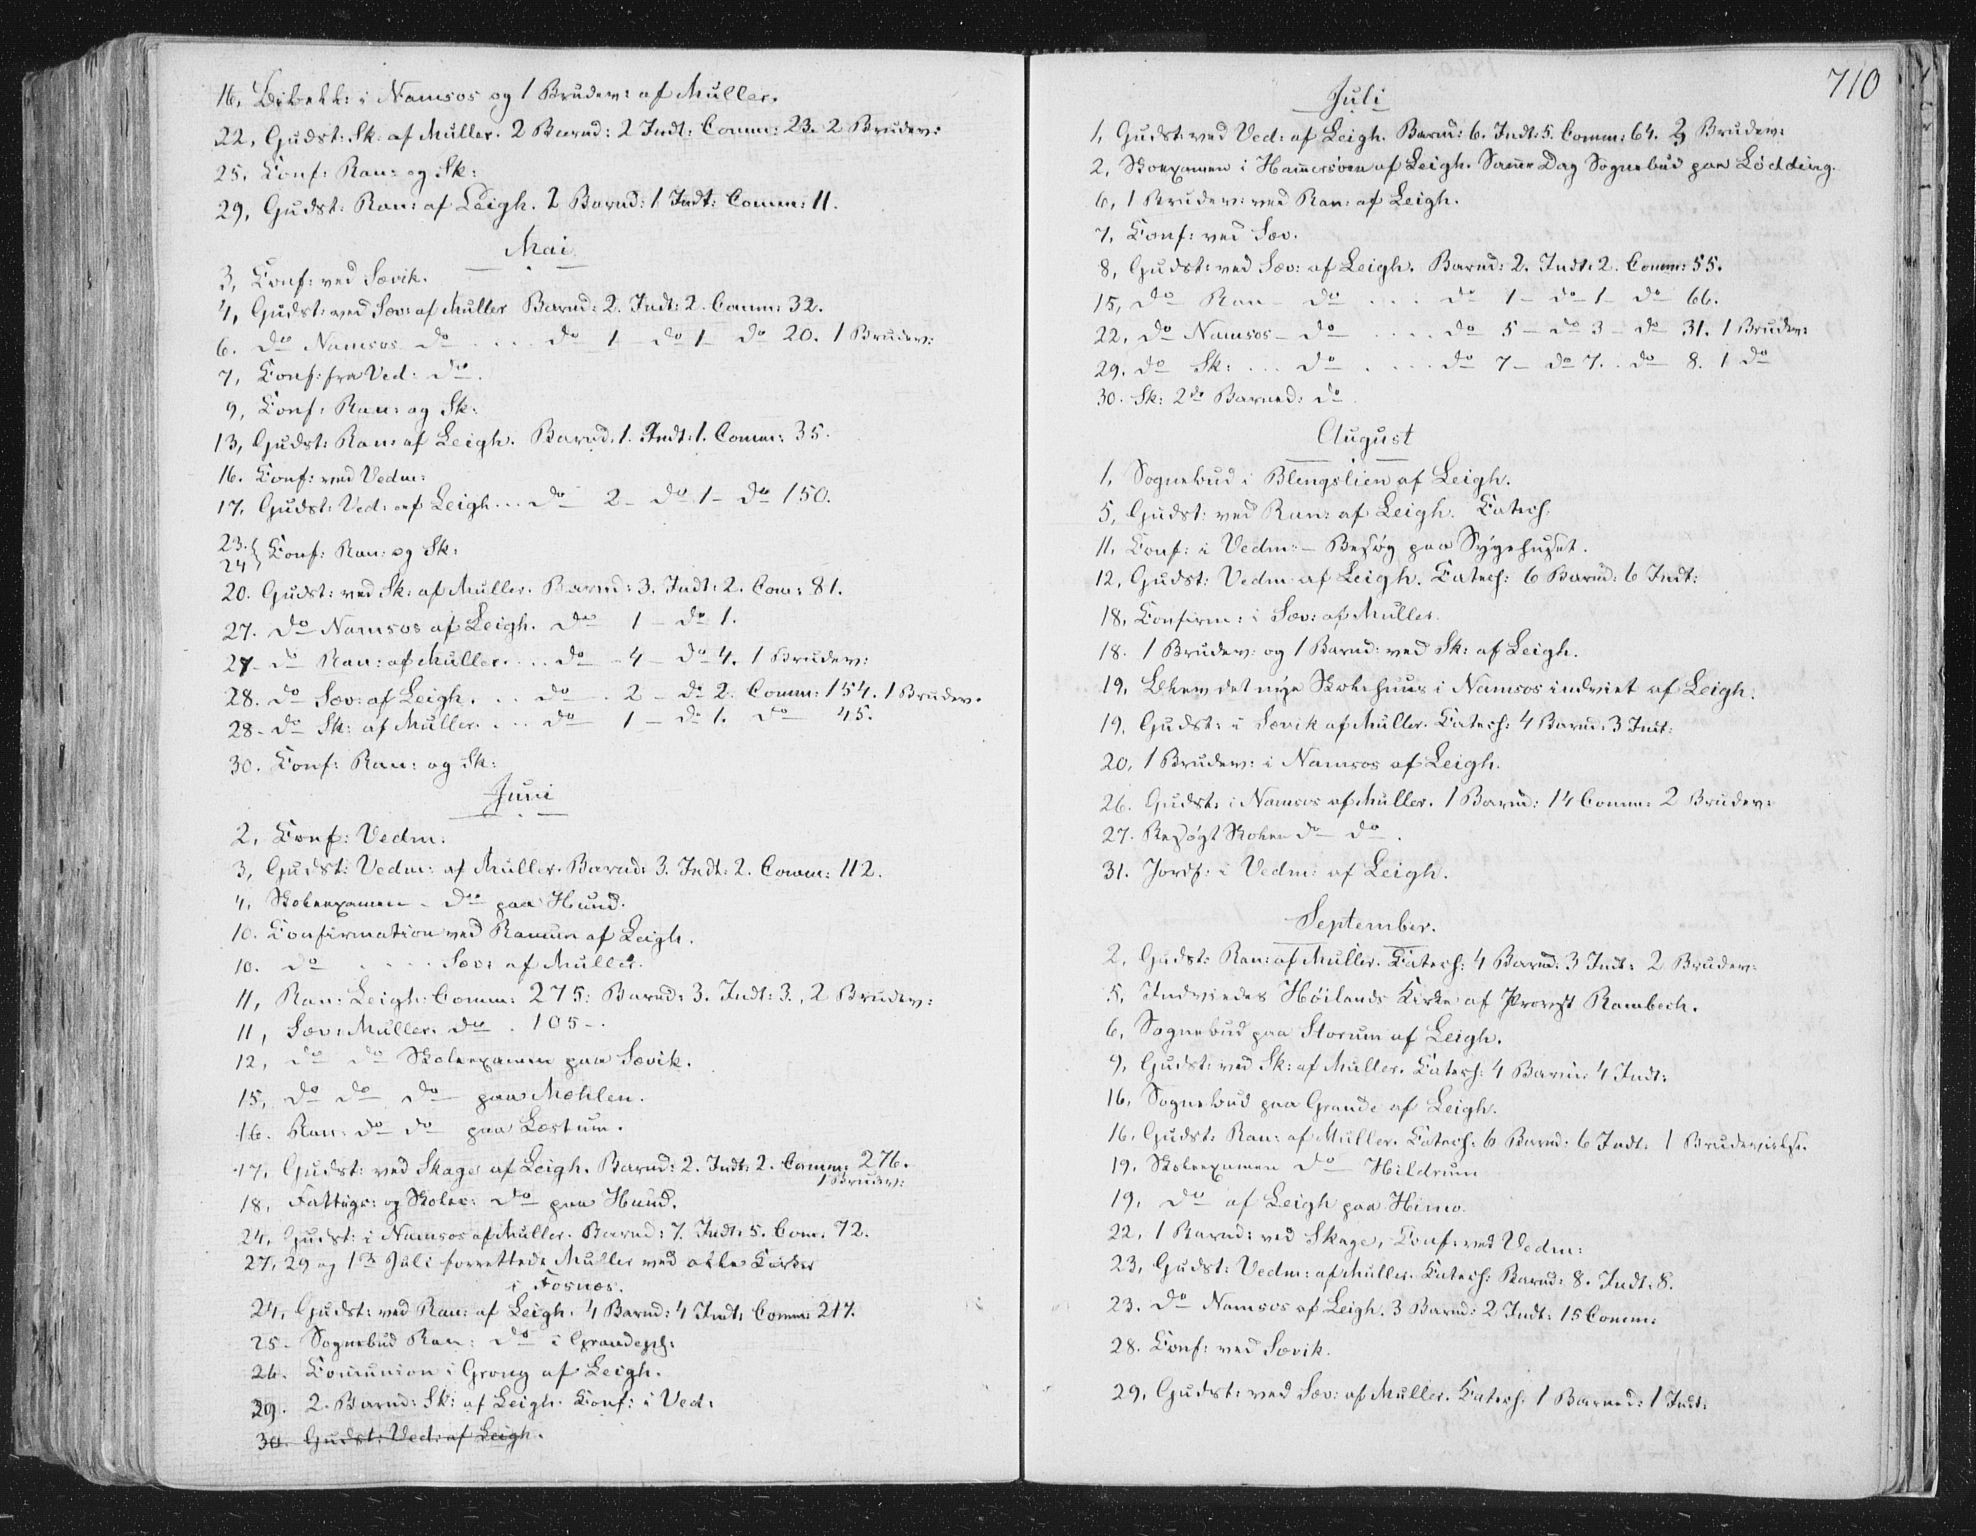 16, i Namsos og 1 Brudev: af Müller.
22, Gudst: Sk: af Müller. 2 Barnd: 2 Indt: Comm: 23. 2 Brudev:
25. Conf: Ran: og Sk:
29, Gudst: Ran: af Leigh. 2 Barnd: 1 Indt: Comm: 11.
Mai
3, Conf: ved Sævik.
4, Gudst: ved Sæv: af Müller Barnd: 2. Indt: 2. Comm: 32.
6. do Namsos do . . . do 1 – do 1 – do 20. 1 Brudev:
7, Conf: fra Ved: do.
9, Conf: Ran: og Sk:
13, Gudst: Ran: af Leigh. Barnd. 1. Indt: 1. Comm: 35.
16. Conf: ved Vedm:
17. Gudst: Ved: af Leigh . . . do 2 – do 1 – do 150.
23. } Conf: Ran: og Sk:
24
20. Gudst: ved Sk: af Müller. Barnd: 3. Indt: 2. Com: 81.
27. do Namsos af Leigh. do 1 – do 1.
27 – do Ran: af Müller. . . . do – 4 – do 4. 1 Brudev:
28. do Sæv: af Leigh. . . do . 2 – do 2. Comm: 154. 1 Brudev.
28 – do Sk: af Müller. . . . do 1 – do 1. do 45.
30. Conf: Ran: og Sk:
Juni
2, Conf: Vedm:
3, Gudst: Vedm: af Müller. Barnd: 3. Indt: 2. Comm: 112.
4, Skoleexamen – do paa Hund.
10. Confirmation ved Ranum af Leigh.
10. do . . . . Sæv: af Müller.
11, Ran: Leigh: Comm: 275: Barnd: 3. Indt: 3., 2 Brudev:
11, Sæv: Müller. do . 105 – .
12, do do Skoleexamen paa Sævik.
15, do do do paa Mæhlen.
16. Ran: do do paa Læstum.
17, Gudst: ved Skage af Leigh. Barnd: 2. Indt: 2. Comm: 276.
1 Brudev:
18, Fattigc: og Skolec: do paa Hund.
24, Gudst: i Namsos af Müller. Barnd: 7. Indt: 5. Com. 72.
27, 29 og 1ste Juli forrettede Müller ved alle Kirker
i Fosnæs.
24, Gudst: ved Ran: af Leigh. 4 Barnd: 4 Indt: Comm: 217.
25. Sognebud Ran: do i
26. Communion i Grong af Leigh.
29. 2. Barnd: Sk: af Leigh. Conf: i Ved:
30. Gudst: Ved: af Leigh.
710
Juli
1, Gudst: ved Ved: af Leigh. Barnd: 6. Indt: 5. Comm: 64. 3 Brudev:
2, Skoexamen i Hammersöen af Leigh. Samme Dag Sognebud paa Lödding.
6, 1 Brudev: ved Ran: af Leigh.
7, Conf: ved Sæv.
8, Gudst: ved Sæv: af Leigh. Barnd: 2. Indt: 2. Comm: 55.
15, do Ran – do . . . . do 1 – do 1 – do 66.
22, do Namsos – do . . . . do 5 – do 3 – do 31. 1 Brudev:
29. do Sk: . . . do . . . . do 7 – do 7. . do 8. 1 do
30. Sk: 2de Barned: do.
August
1, Sognebud i Blengslien af Leigh.
5, Gudst: ved Ran: af Leigh. Catech.
11. Conf: i Vedm: – Besøg paa Sygehuset.
12, Gudst: Vedm: af Leigh. Catech: 6 Barnd: 6 Indt:
18, Confirm: i Sæv: af Müller.
18. 1 Brudev: og 1 Barnd: ved Sk: af Leigh.
19, Blev det nye Skolehuus i Namsos indviet af Leigh.
19. Gudst: i Sævik af Müller. Catech: 4 Barnd: 3 Indt:
20, 1 Brudev: i Namsos af Leigh.
26. Gudst: i Namsos af Müller. 1 Barnd: 14 Comm: 2 Brudev:
27. Besøgt Skolen do do.
31. Jordf: i Vedm: af Leigh.
September.
2, Gudst: Ran: af Müller. Catech: 4 Barnd: 3 Indt: 2 Brudev:
5, Indviedes Høilands Kirke af Provst Rambech.
6, Sognebud paa Storum af Leigh.
9, Gudst: ved Sk: af Müller. Catech: 4 Barnd: 4 Indt:
16, Sognebud paa Grande af Leigh.
16. Gudst: Ran: af Müller. Catech: 6 Barnd: 6 Indt: 1
19. Skoleexamen do Hildrum
19, do af Leigh paa Himo.
22, 1 Barnd: ved Skage, Conf: ved Vedm:
23, Gudst: Vedm: af Müller. Catech: Barnd: 8. Indt: 8.
23. do Namsos af Leigh. 3 Barnd: 2 Indt: 15 Comm:
28. Conf: ved Sævik.
29, Gudst: ved Sæv: af Müller. Catech. 1 Barned: 1 Indt: